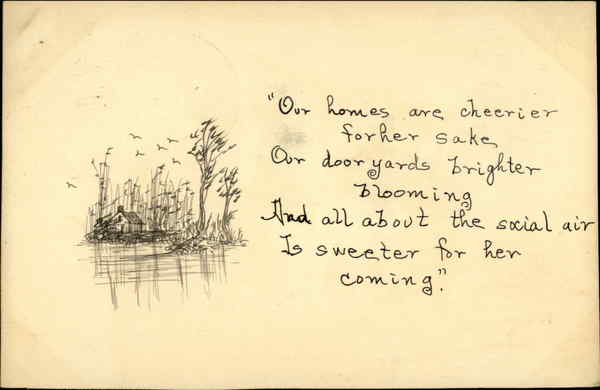 "Our homes are cheerier
for her sake,
Our door yards brighter
blooming
And all about the social air
Is sweeter for her
coming."